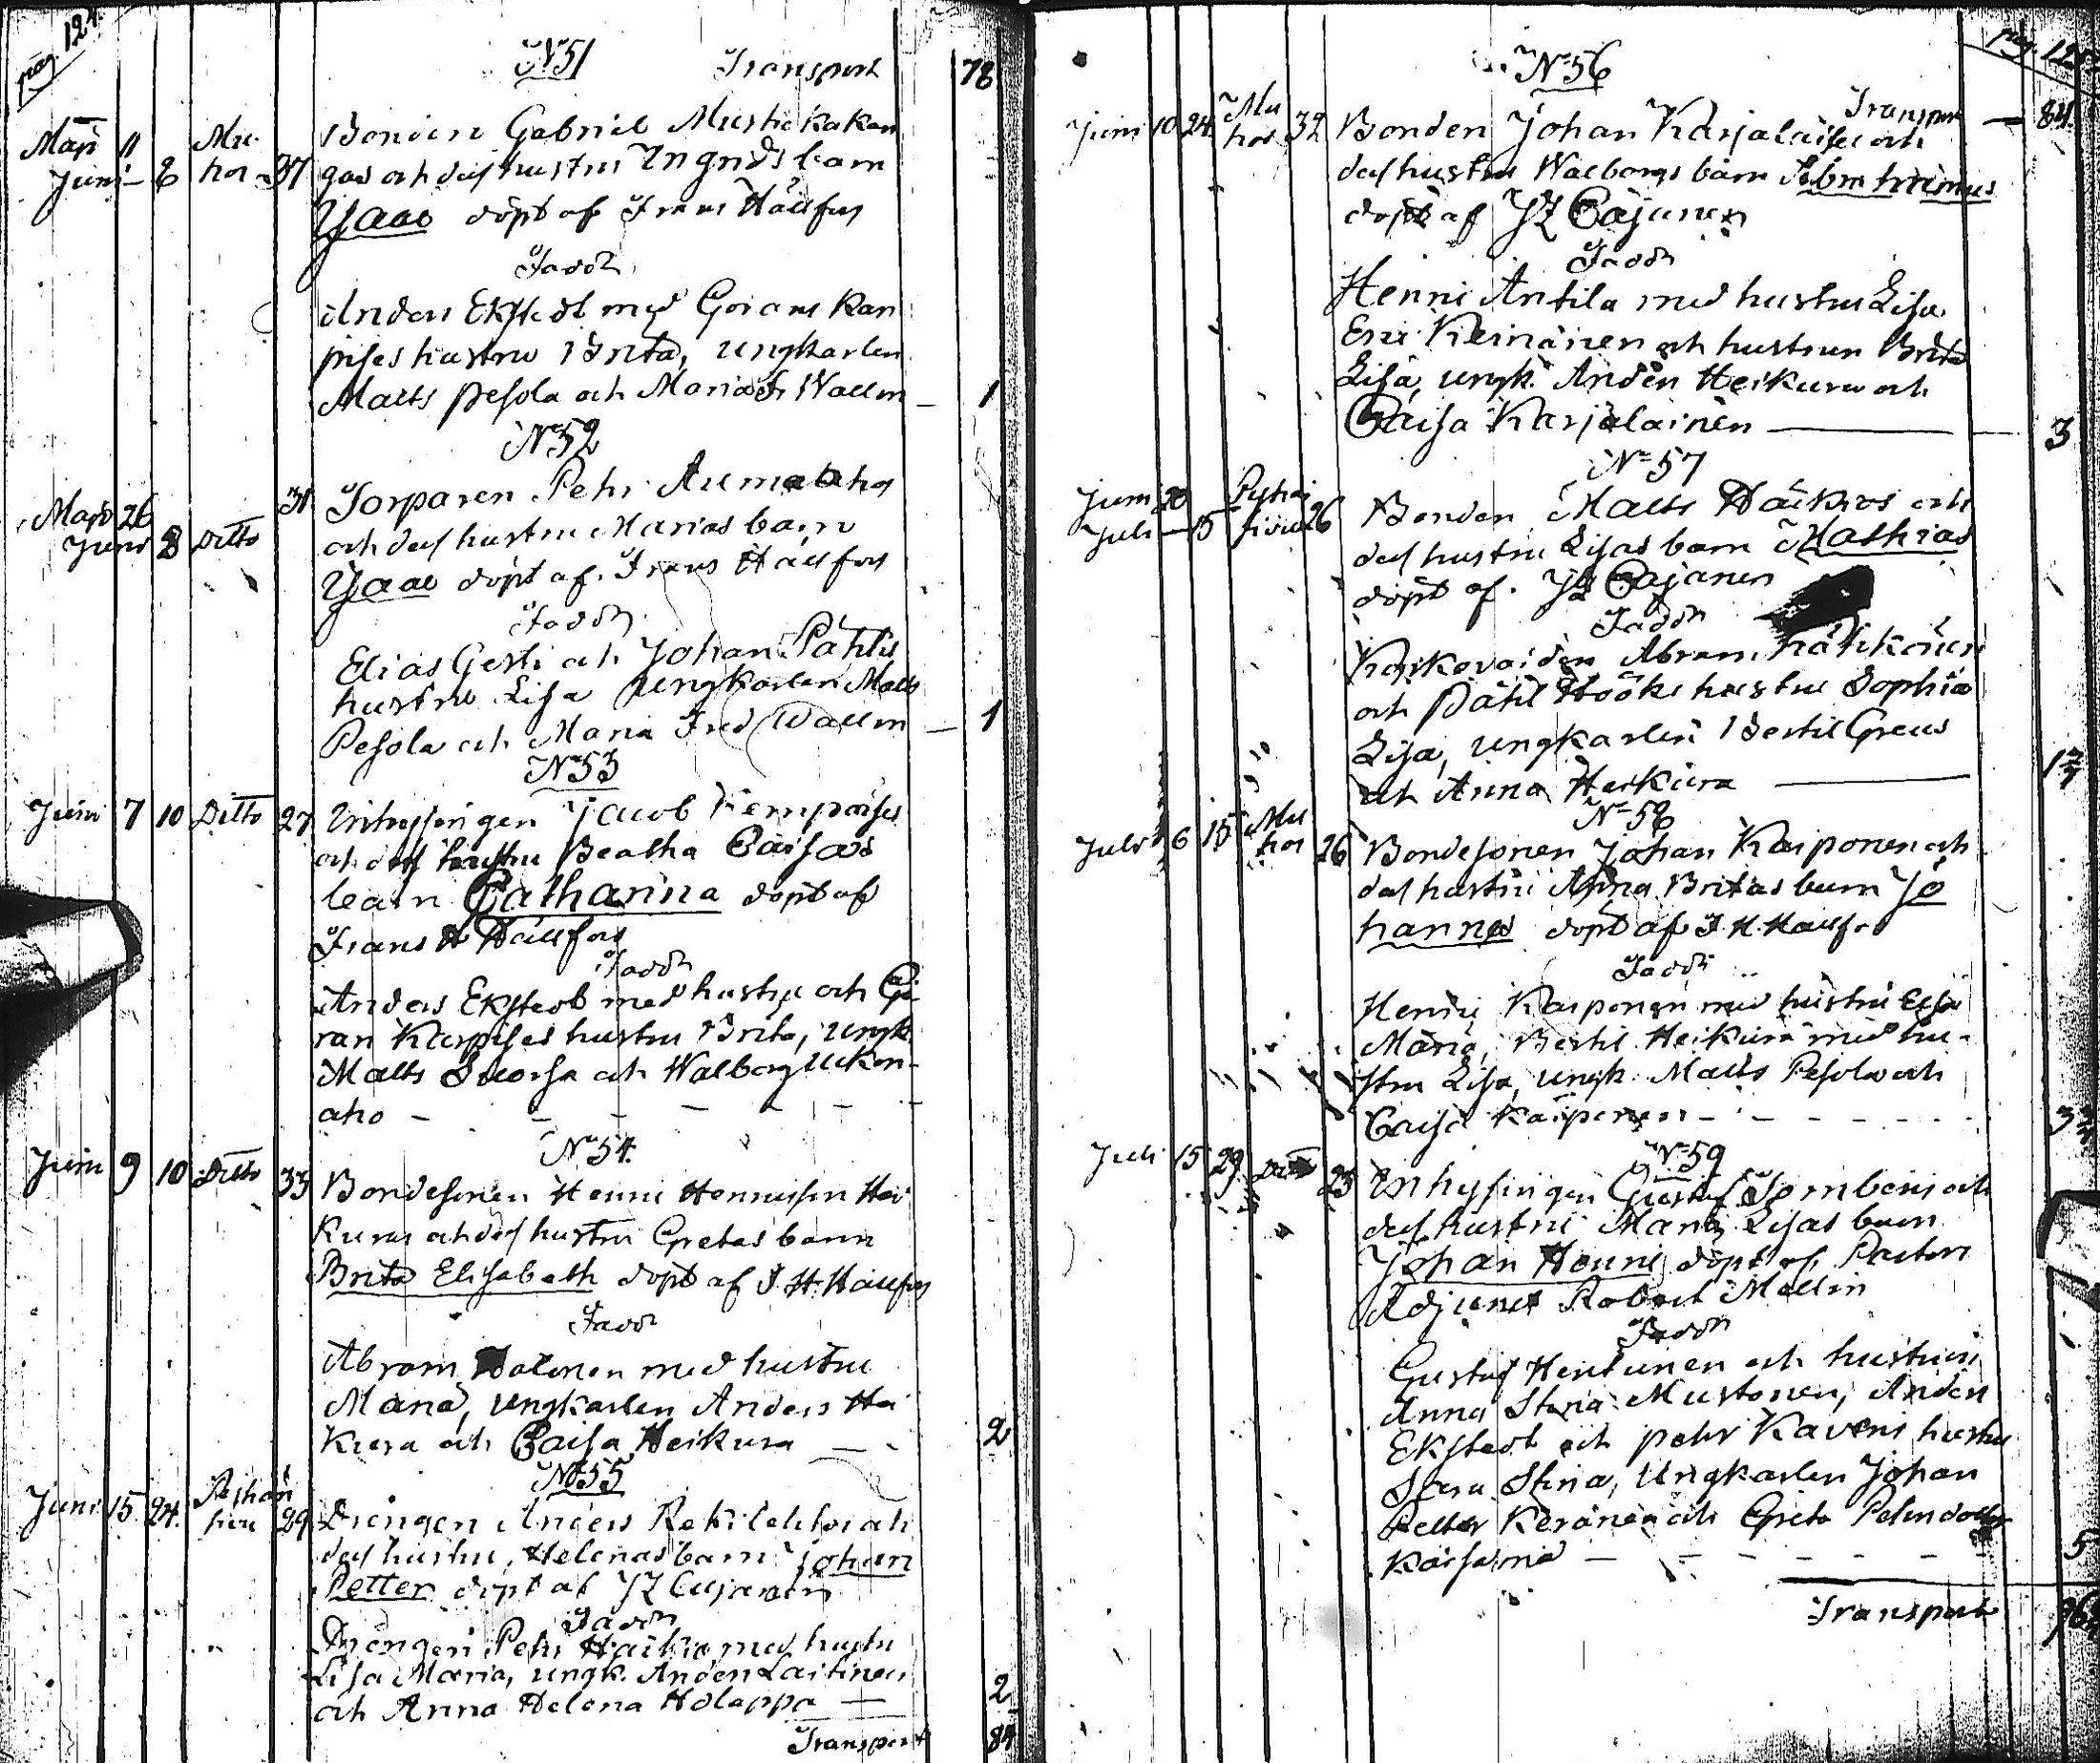 pag. 124.
N:51 Transport 78
Maji 11 Mu- Bonden Gabriel Mustakakan
Juni – 8 hos 37 gas och dess hustru Ingrids barn
Isaac döpt af Frans Hällfors
Fadd:
Anders Ekstedt med Görans Kar
pises hustru Brita, ungkarlen
Matts Pesola och Maria Fr. Wallin – 1
N:52
31 Torparen Pehr Aumaaho
Maji 26 och dess hustru Marias barn
Juni 8 Ditto
Isaac döpt af Frans Hällfors
Fadd:
Elias Gerti och Johan Påhlis
hustru Lisa ungkarlen Matts
Pesola och Maria Fred Wallin – 1
N:53
Juni 7 10 Ditto 27 Inhysingen Jacob Kempaises
och dess hustru Beatha Caisas
barn Catharina döpt af
Frans H Hällfors
Fadd:
Anders Ekstedt med hustru och Gö
ran Karpises hustru Brita, ungk.
Matts Suorsa och Walborg Ukon-
aho – – – – – –
N:54.
Juni 9 10 Ditto 33 Bondesonen Henric Henricsson Hei
kuras och dess hustru Gretas barn
Brita Elisabeth döpt af F. H. Hällfors
Fadd:
Abram Tolonen med hustru
Maria, ungkarlen Anders Hei
kura och Caisa Heikura – – 2
N:55
Juni 15. 24. Pyhän
sivu 29 Drengen Anders Rekilehtos och
dess hustru, Helenas barn Johan
Petter döpt af JZ Cajanen
Fadd:
Drengen Pehr Häikiö med hustru
Lisa Maria, ungk. Anders Laitinen
och Anna Helena Holappa — 2
Transport 84
pag. 125
N:56
Transport — 84.
Juni 10 24. Mu
hos 32 Bonden Johan Karjalaises och
dess hustru Walborgs barn Abrahamus
döpt af JZ Cajanen
Fadd:
Henric Antila med hustru Lisa
Eric Keinänen och hustrun Brita
Lisa, ungk. Anders Heikura och
Caisa Karjalainen — 3
N:57
Juni 20 Pyhän
Juli – 15 sivu 26 Bonden Matts Häikiös och
dess hustru Lisas barn Mathias
döpt af JZ Cajanen
Fadd:
Koskovoiden Abram Hätikönen
och Påhl Hööks hustru Sophia
Lisa, ungkarlen Bertil Greus
och Anna Heikura —
N:58
Juli 6 15 Mu
hos 26 Bondesonen Johan Kaiponen och
dess hustru Anna Britas barn Jo
hannes döpt af F. H. Hällfors
Fadd:
Henric Kaiponen med hustru Elsa
Maria, Bertil Heikura med hu-
stru Lisa, ungk. Matts Pesola och
Caisa Kaiponen – – – – –
N:59
Juli 15 29 Ditto 25 Inhysingen Gustaf Tornbergs och
dess hustru Maria Lisas barn
Johan Henric döpt af Pastors
Adjunct Robert Mellin
Fadd:
Gustaf Hentunen och hustrun
Anna Stina Mustonen, Anders
Ekstedt och Pehr Kavens hustru
Sara Stina, Ungkarlen Johan
Petter Keränen och Greta Pehrsdotter
Kaisama – – – – – – 5
Transport